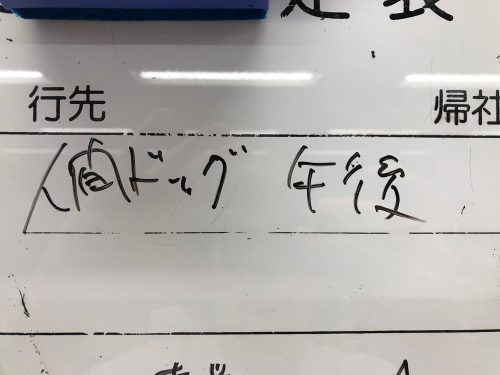 定表
行先 帰社
人間ドッグ 午後